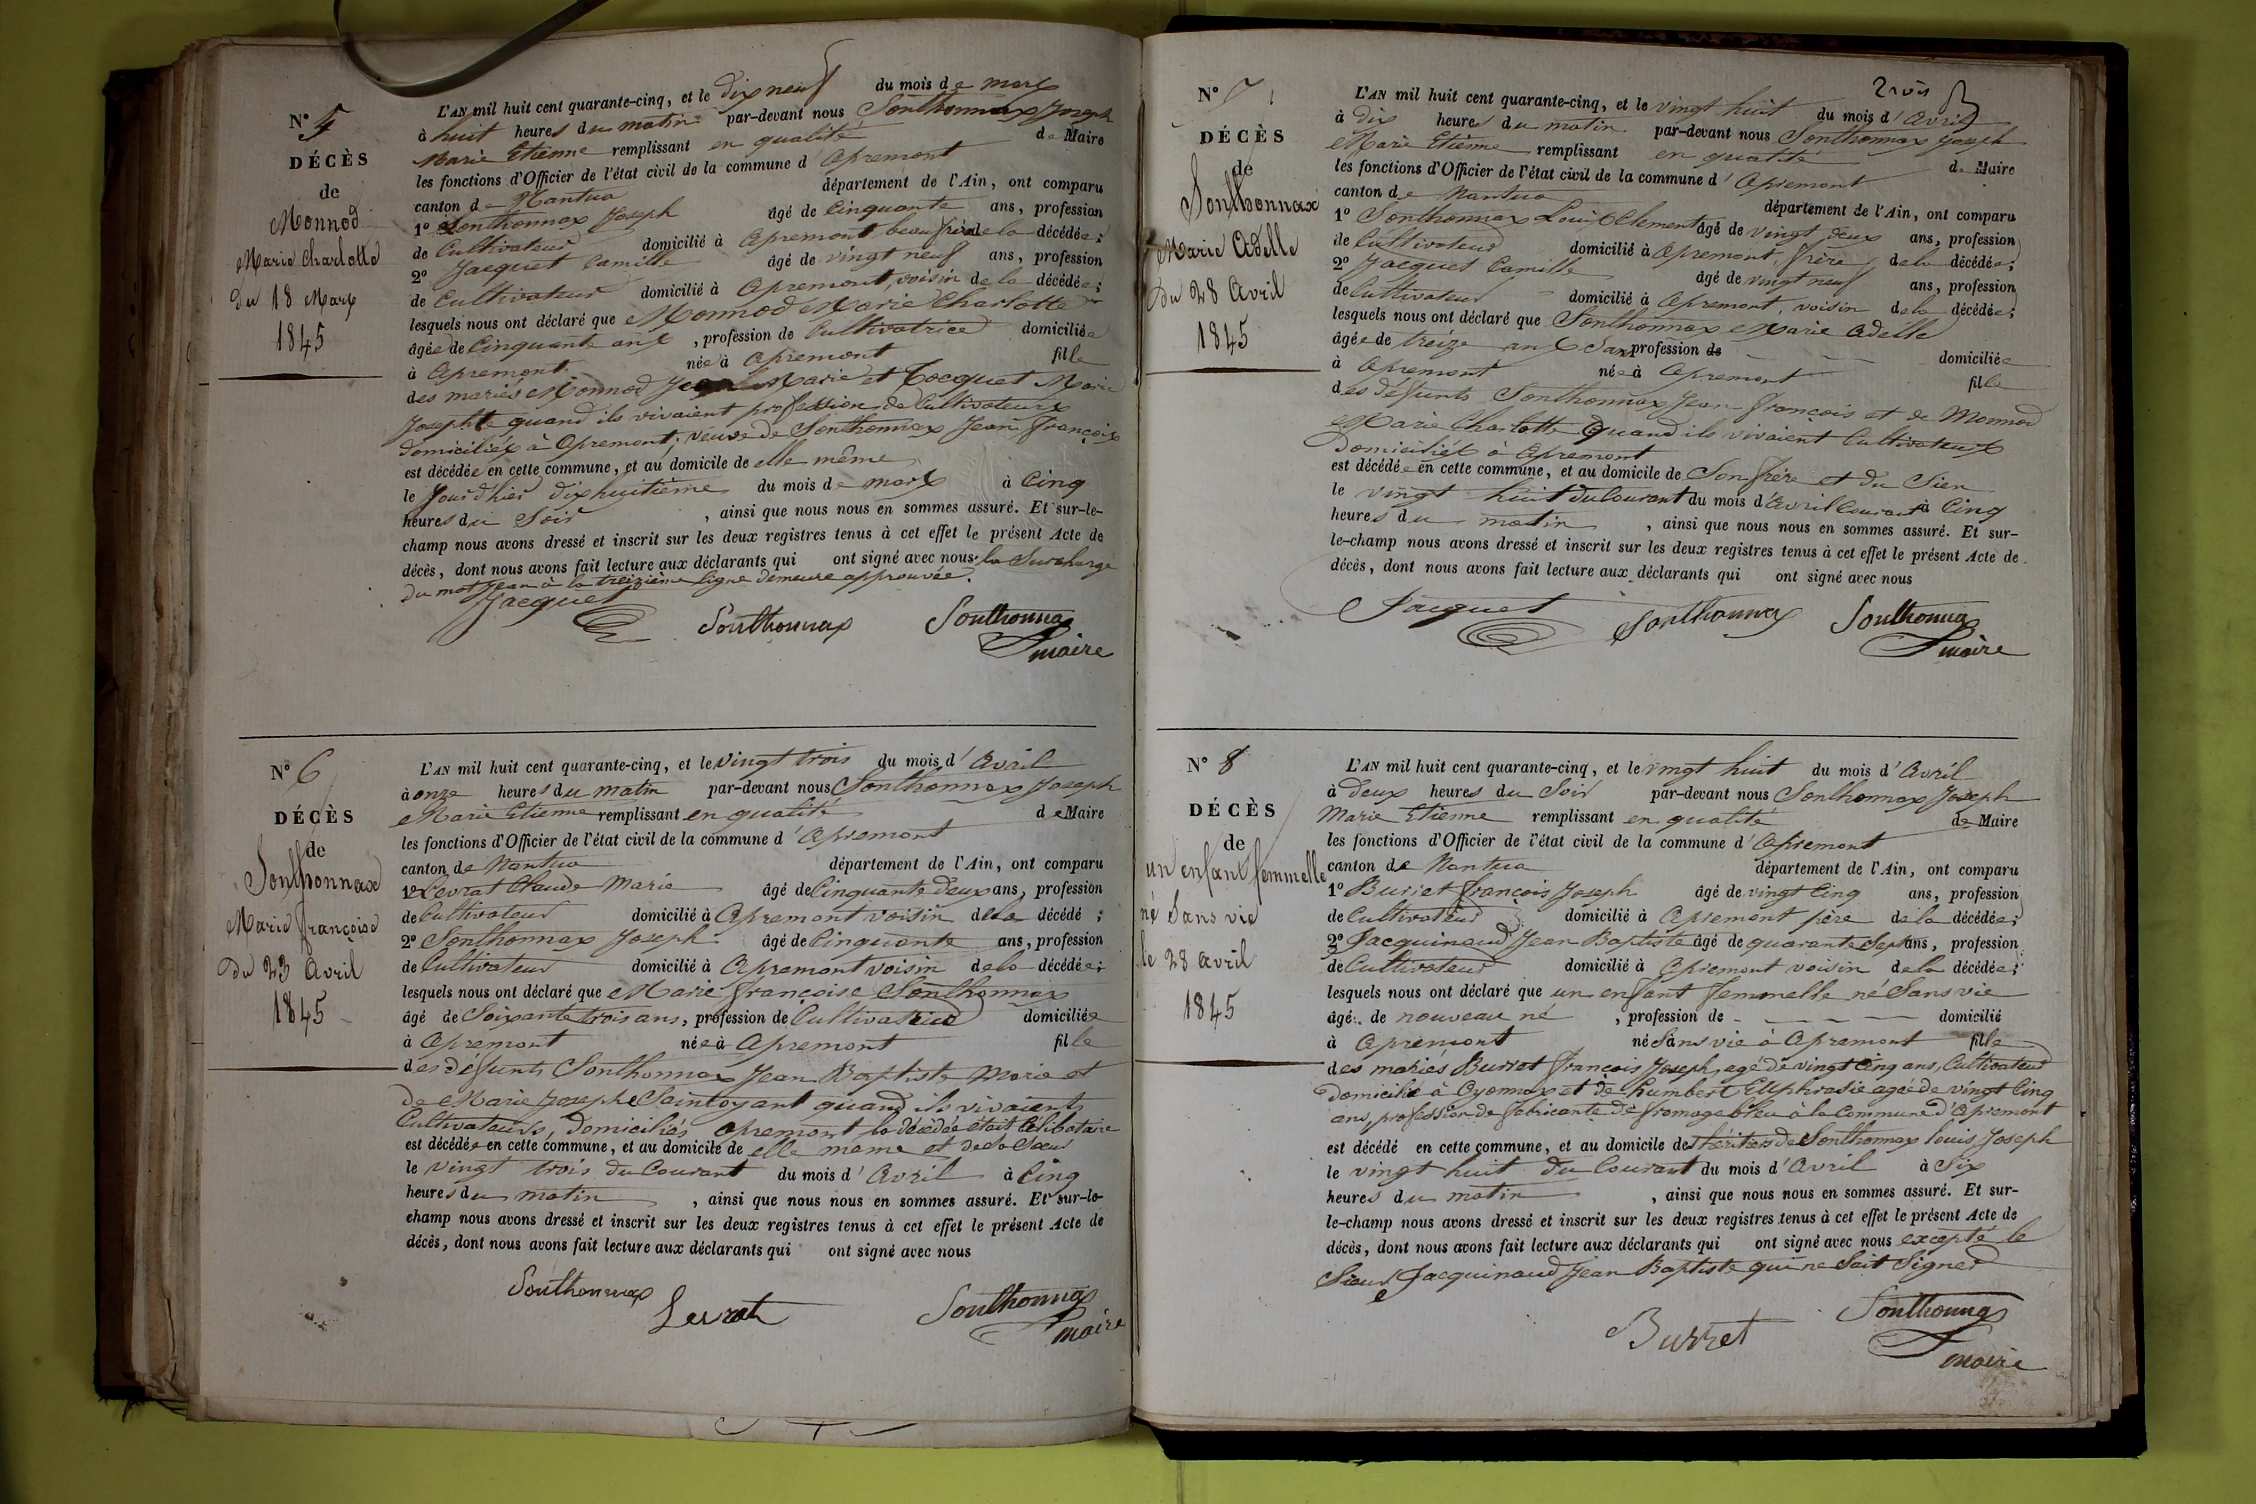 N° 5
DÉCÈS
de
Monnod
Marie Charlotte
Du 18 Marx
1845
L'AN mil huit cent quarante-cinq, et le dix neuf du mois de marx
à huit heures du matin par-devant nous Sonthonnax Joseph
Marie Etienne remplissant en qualité de Maire
les fonctions d'Officier de l'état civil de la commune d'Apremont
canton de Nantua département de l'Ain, ont comparu
1° Sonthonnax Joseph âgé de Cinquante ans, profession
de Cultivateur domicilié à Apremont beau frère de la décédée;
2° Jacquet Camille âgé de vingt neuf ans, profession
de Cultivateur domicilié à Apremont, voisin de la décédée;
lesquels nous ont déclaré que Monnod Marie Charlotte
âgée de Cinquante ans, profession de Cultivatrice domiciliée
à Apremont née à Apremont fille
des mariés Monnod Jean Marie et Tocquet Marie
Josephte quand ils vivaient profession de Cultivateurs
domiciliés à Apremont; veuve de Sonthonnax Jean françois
est décédée en cette commune, et au domicile de elle même
le Jour d'hier dix huitième du mois de marx à Cinq
heures du Soir, ainsi que nous nous en sommes assuré. Et sur-le-
champ nous avons dressé et inscrit sur les deux registres tenus à cet effet le présent Acte de
décès, dont nous avons fait lecture aux déclarants qui ont signé avec nous. la Surcharge
du mot Jean à la treizième ligne demeure approuvée.
Jacquet Sonthonnax Sonthonnax
maire
N° 6
DÉCÈS
de
Sonthonnax
Marie françoise
Du 23 Avril
1845
L'AN mil huit cent quarante-cinq, et le Vingt trois du mois d'Avril
à onze heures du matin par-devant nous Sonthonnax Joseph
Marie Etienne remplissant en qualité de Maire
les fonctions d'Officier de l'état civil de la commune d'Apremont
canton de Nantua département de l'Ain, ont comparu
1° Levrat Claude Marie âgé de Cinquante deux ans, profession
de Cultivateur domicilié à Apremont voisin de la décédé;
2° Sonthonnax Joseph âgé de Cinquante ans, profession
de Cultivateur domicilié à Apremont voisin de la décédée;
lesquels nous ont déclaré que Marie françoise Sonthonnax
âgé de Soixante trois ans, profession de Cultivatrice domiciliée
à Apremont née à Apremont fille
des défunts Sonthonnax Jean Baptiste Marie et
de Marie Josephe Saintoyant quand ils vivaient
Cultivateurs, domiciliés Apremont la décédée était Célibataire
est décédée en cette commune, et au domicile de elle meme et de la Sœur
le vingt trois du Courant du mois d'Avril à Cinq
heures du matin, ainsi que nous nous en sommes assuré. Et sur-le-
champ nous avons dressé et inscrit sur les deux registres tenus à cet effet le présent Acte de
décès, dont nous avons fait lecture aux déclarants qui ont signé avec nous
Sonthonnax Levrat Sonthonnax
maire
N° 7
DÉCÈS
de
Sonthonnax
Marie Adelle
Du 28 Avril
1845
trois
L'AN mil huit cent quarante-cinq, et le vingt huit du mois d'Avril
à dix heures du matin par-devant nous Sonthonnax Joseph
Marie Etienne remplissant en qualité de Maire
les fonctions d'Officier de l'état civil de la commune d'Apremont
canton de Nantua département de l'Ain, ont comparu
1° Sonthonnax Louis Clement âgé de vingt deux ans, profession
de Cultivateur domicilié à Apremont, frère de la décédée;
2° Jacquet Camille âgé de vingt neuf ans, profession
de Cultivateur domicilié à Apremont, voisin de la décédée;
lesquels nous ont déclaré que Sonthonnax Marie Adelle
âgée de treize ans Sans profession de domiciliée
à Apremont née à Apremont fille
des défunts Sonthonnax Jean françois et de Monnod
Marie Charlotte Quand ils vivaient Cultivateurs
domiciliés à Apremont
est décédée en cette commune, et au domicile de Son frère et du Sien
le vingt huit du Courant du mois d'Avril Courant à Cinq
heures du matin, ainsi que nous nous en sommes assuré. Et sur-
le-champ nous avons dressé et inscrit sur les deux registres tenus à cet effet le présent Acte de
décès, dont nous avons fait lecture aux déclarants qui ont signé avec nous
Jacquet Sonthonnax Sonthonnax
maire
N° 8
DÉCÈS
de
un enfant femmelle
né Sans vie
le 28 avril
1845
L'AN mil huit cent quarante-cinq, et le vingt huit du mois d'Avril
à deux heures du Soir par-devant nous Sonthonnax Joseph
Marie Etienne remplissant en qualité de Maire
les fonctions d'Officier de l'état civil de la commune d'Apremont
canton de Nantua département de l'Ain, ont comparu
1° Burret françois Joseph âgé de vingt Cinq ans, profession
de Cultivateur domicilié à Apremont père de la décédée;
2° Jacquinaud Jean Baptiste âgé de quarante Sept ans, profession
de Cultivateur domicilié à Apremont voisin de la décédée;
lesquels nous ont déclaré que un enfant femmelle né Sans vie
âgé de nouveau né, profession de domicilié
à Apremont né Sans vie à Apremont fille
des mariés Burret François Joseph, agé de vingt Cinq ans, Cultivateur
domicilié à Oyonnax et de humbert Euphrasie agée de vingt Cinq
ans, profession de fabricante de fromage bleu à la Commune d'Apremont
est décédé en cette commune, et au domicile des héritiers de Sonthonnax louis Joseph
le vingt huit du Courant du mois d'Avril à Six
heures du matin, ainsi que nous nous en sommes assuré. Et sur-
le-champ nous avons dressé et inscrit sur les deux registres tenus à cet effet le présent Acte de
décès, dont nous avons fait lecture aux déclarants qui ont signé avec nous excepté le
Sieur Jacquinaud Jean Baptiste qui ne Sait Signer
Burret Sonthonnax
maire